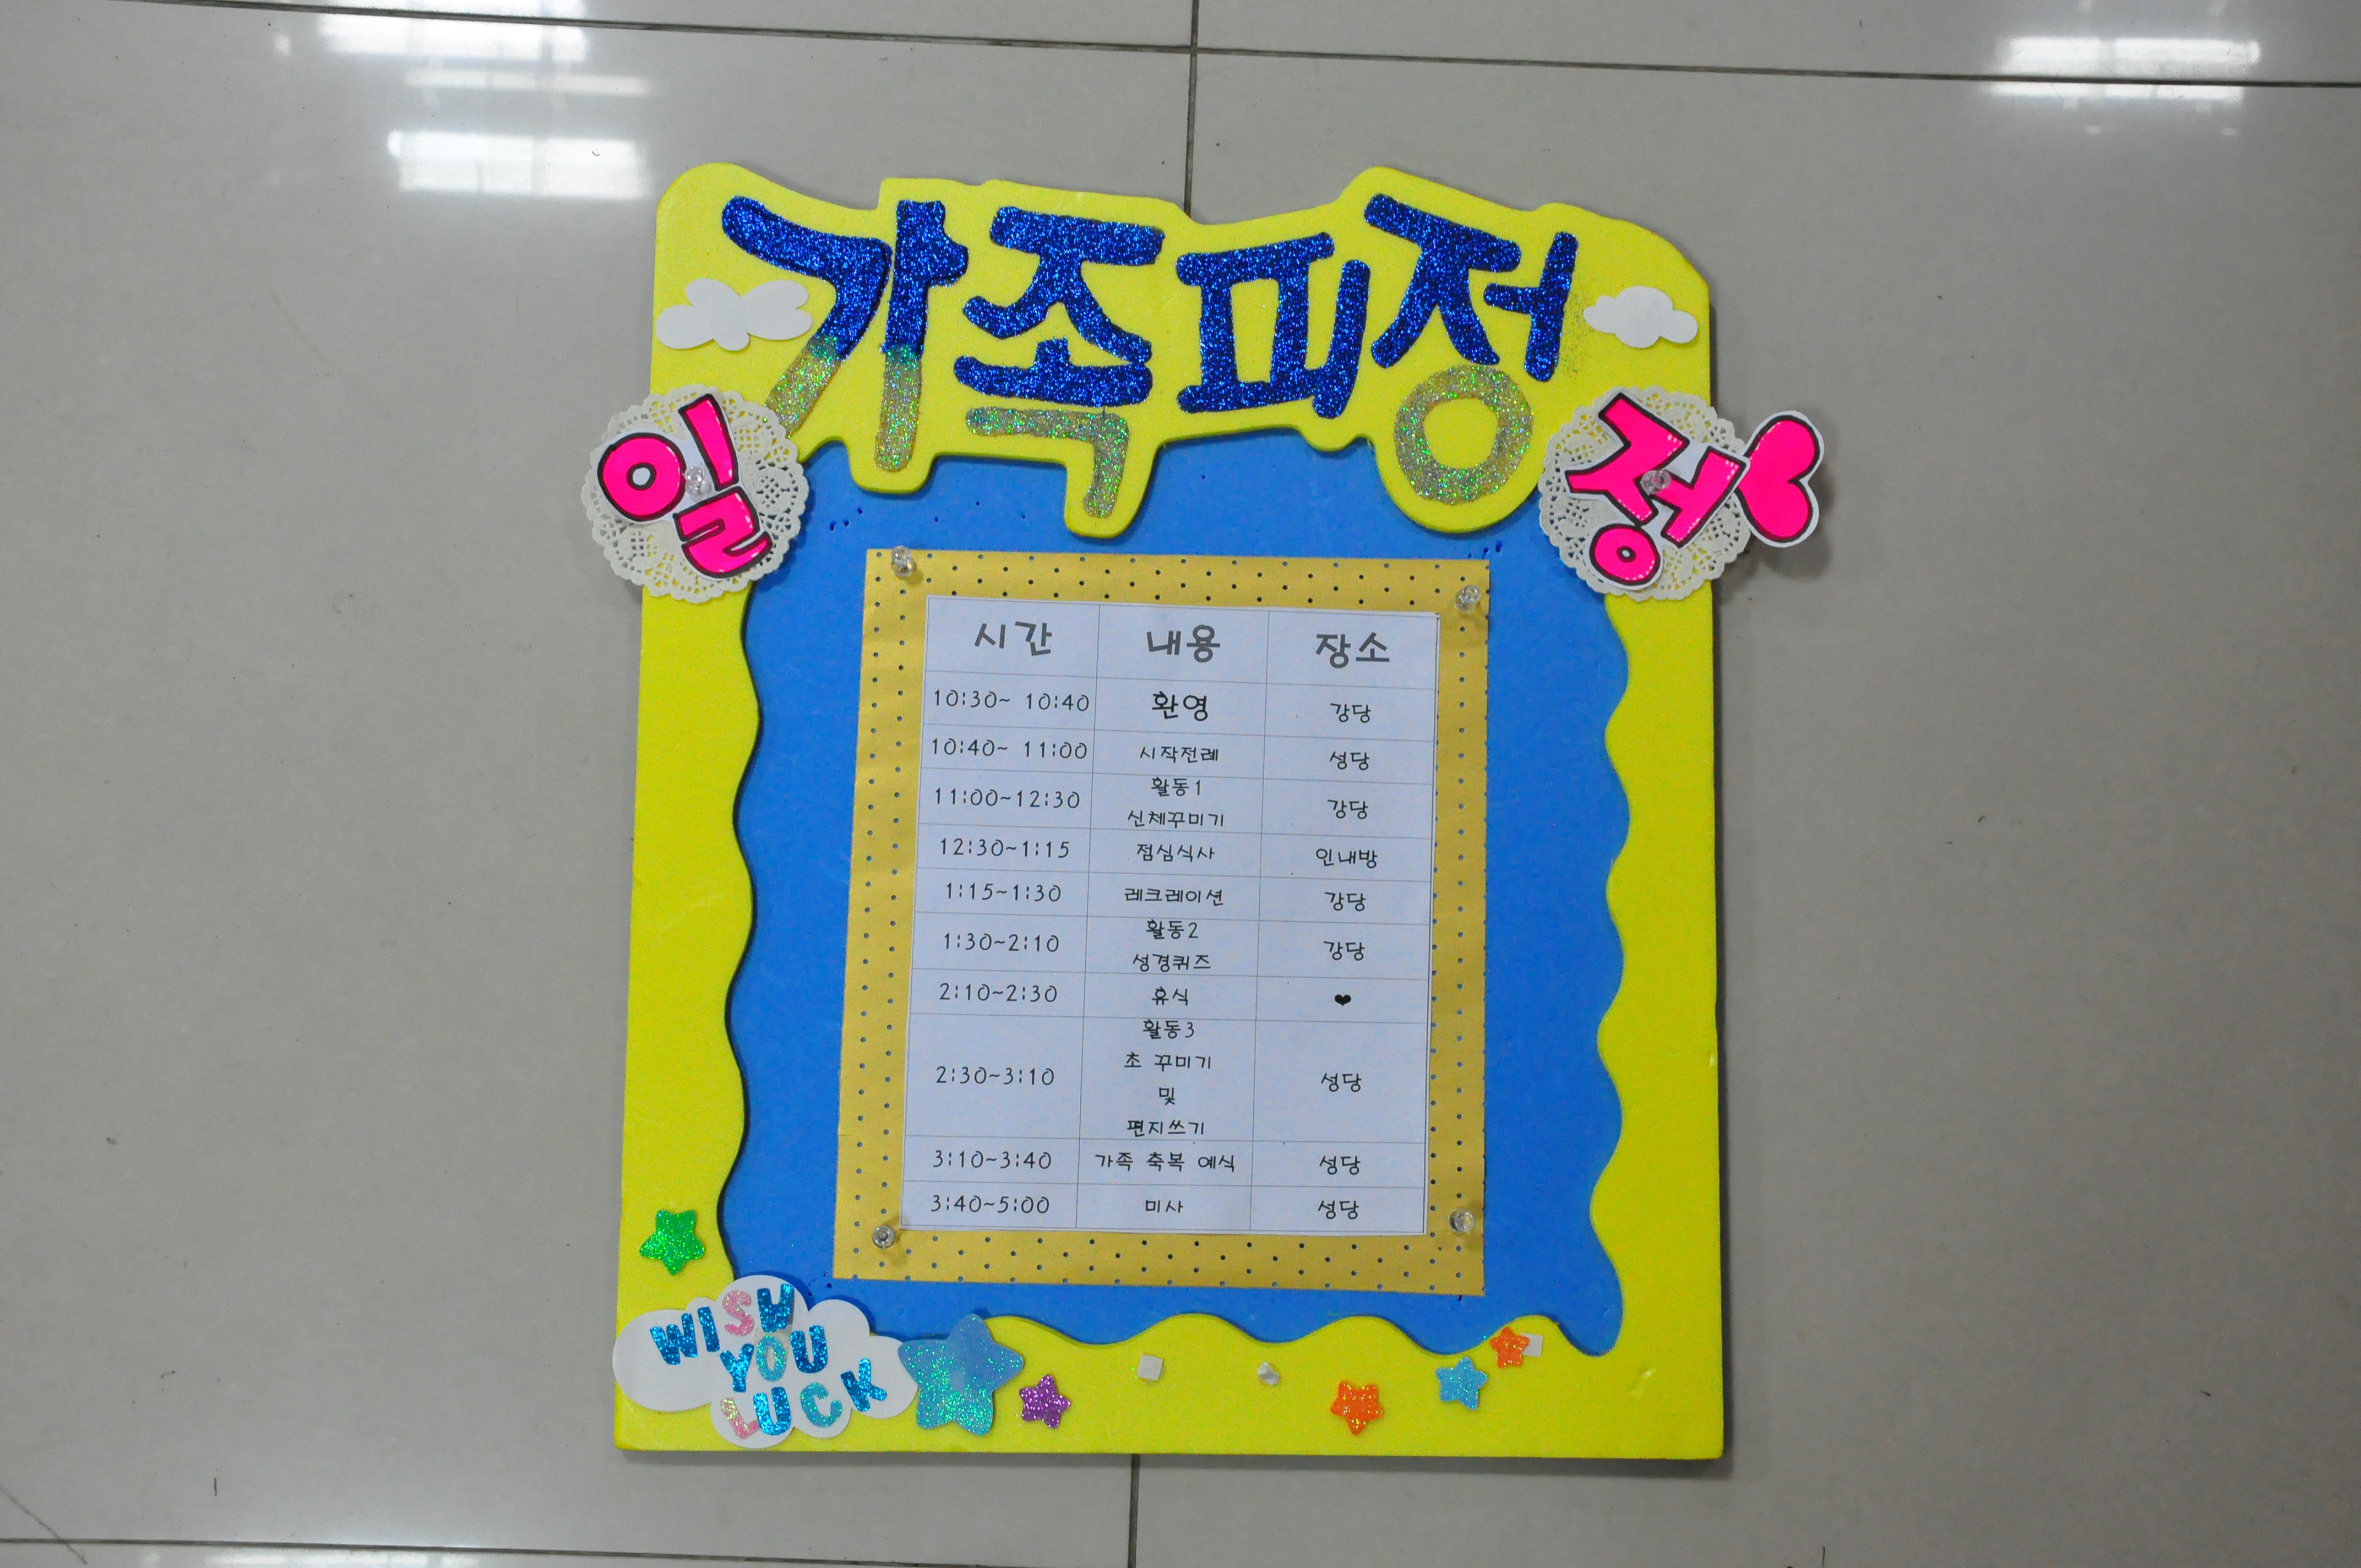 가족피정
일정
시간 내용 장소
10:30~ 10:40 환영 강당
10:40~ 11:00 시작전례 성당
11:00~12:30 활동1 강당
신체꾸미기
12:30~1:15 점심식사 인내방
1:15~1:30 레크레이션 강당
1:30~2:10 활동2 강당
성경퀴즈
2:10~2:30 휴식 ❤
2:30~3:10 활동3 성당
초 꾸미기
및
편지쓰기
3:10~3:40 가족 축복 예식 성당
3:40~5:00 미사 성당
WISH
YOU
LUCK